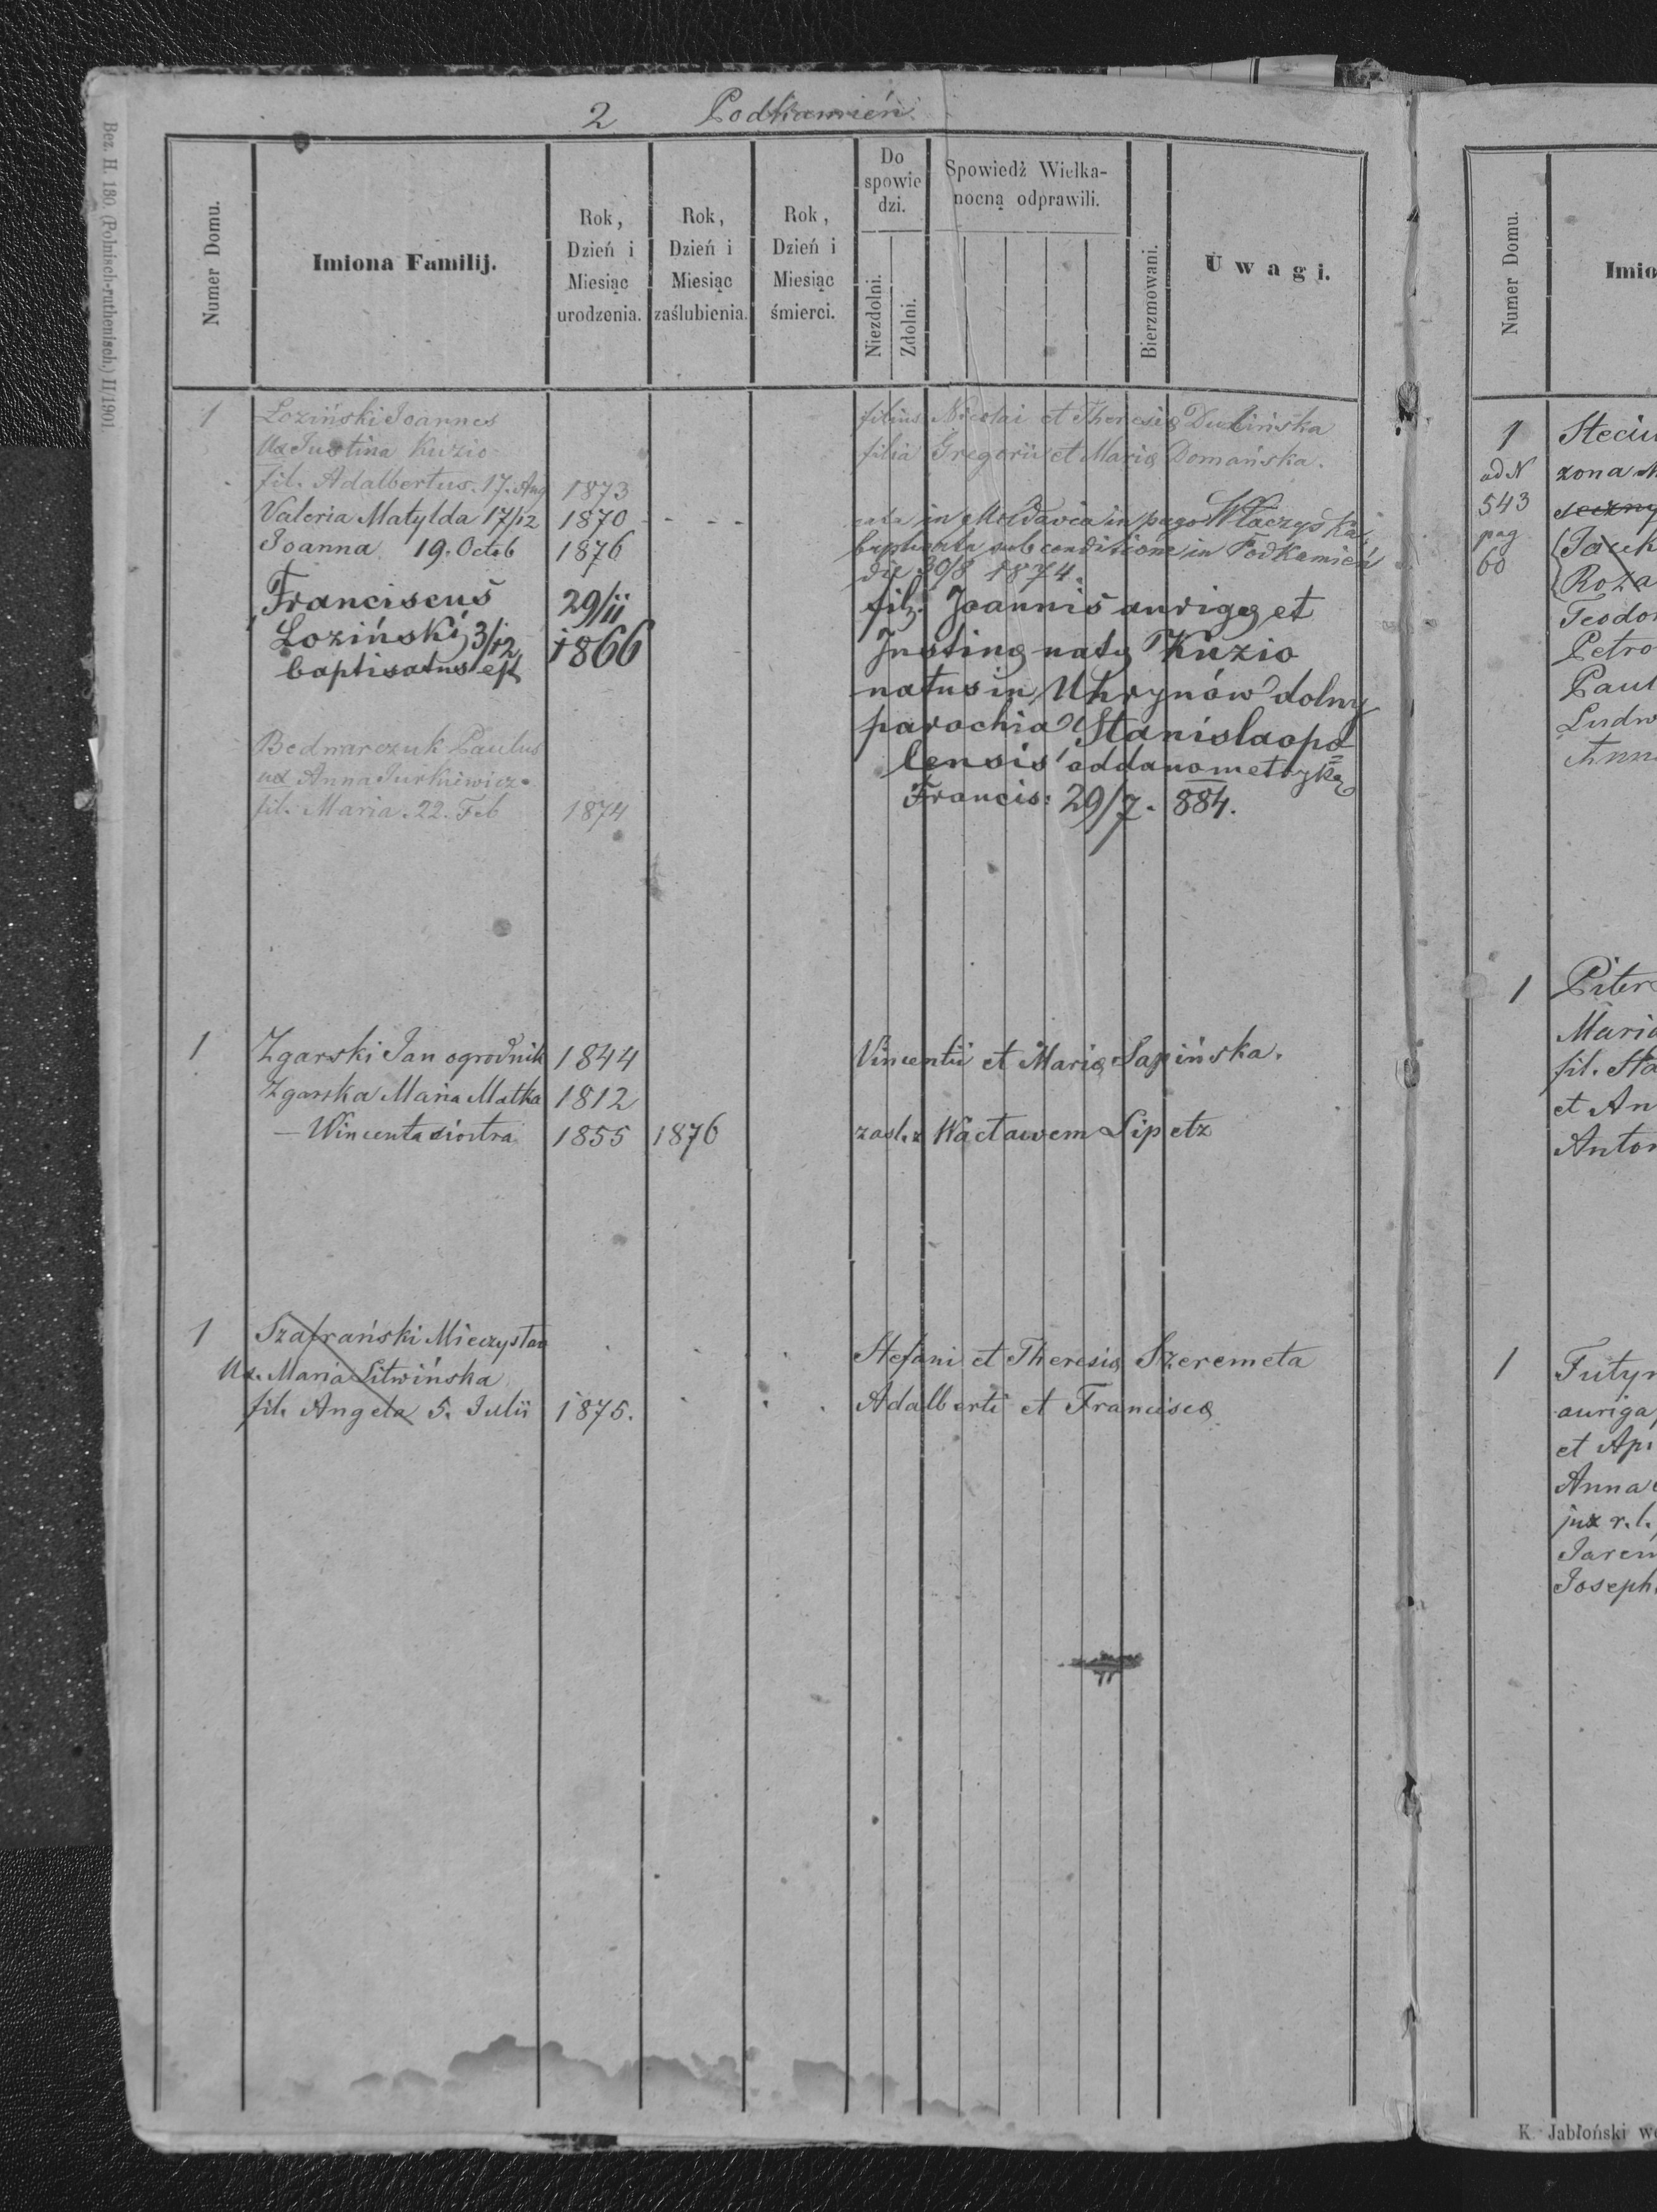 2 Podkamień
Bez. H. 180. (Polnisch-ruthenisch.) II/1901.
Numer Domu.
Imiona Familij.
Rok, Dzień i Miesiąc urodzenia.
Rok, Dzień i Miesiąc zaślubienia.
Rok, Dzień i Miesiąc śmierci.
Do spowiedzi.
Niezdolni.
Zdolni.
Spowiedź Wielkanocną odprawili.
Bierzmowani.
Uwagi.
1 Loziński Joannes filius Nicolai et Theresię Dulińska
Ux Justina Kuzio filia Gregorii et Marię Domańska.
fil. Adalbertus. 17. Aug 1873
Valeria Matylda 17/12 1870 - - - nata in Moldavia in pago
Joanna 19. Octob 1876 baptisata sub conditione in Podkamień
die 30/8 1874.
Franciscus 29/11 fil. Joannis aurigę et
Loziński 3/12 1866 Justinę natę Kuzio
baptisatus est natus in Uhrynów dolny
parochia Stanislaopo
Bednarczuk Paulus lensis oddano metrykę
ux Anna Jurkiewicz Francis: 29/7. 884.
fil. Maria. 22. Feb 1874
1 Zgarski Jan ogrodnik 1844 Vincentii et Marię Sapińska.
Zgarska Maria Matka 1812
— Wincenta siostra 1855 1876 zaśl. z Wacławem Lipetz
1 Szafrański Mieczysław Stefani et Theresię Szeremeta
Ux. Maria Litwińska Adalberti et Franciscę
fil. Angela 5. Julii 1875.
Numer Domu.
Imio
1 Steciu
ad N zona M
543
pag Jack
60 Roza
Teodo
Petro
Paul
Ludw
Anna
1 Piter
Maria
fil. Sta
et An
Anton
1 Futyr
auriga
et Ap
Anna
jux r. l.
Jarem
Joseph
K. Jabłoński we